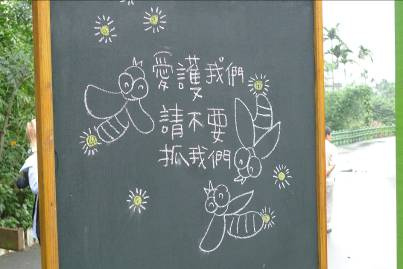 愛護我們
請不要
抓我們